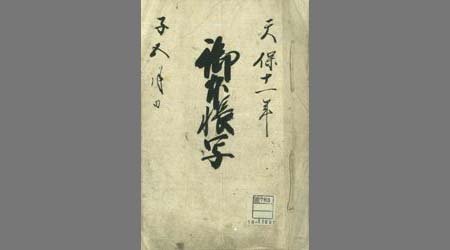 天保十一年
御水帳写
子五月日